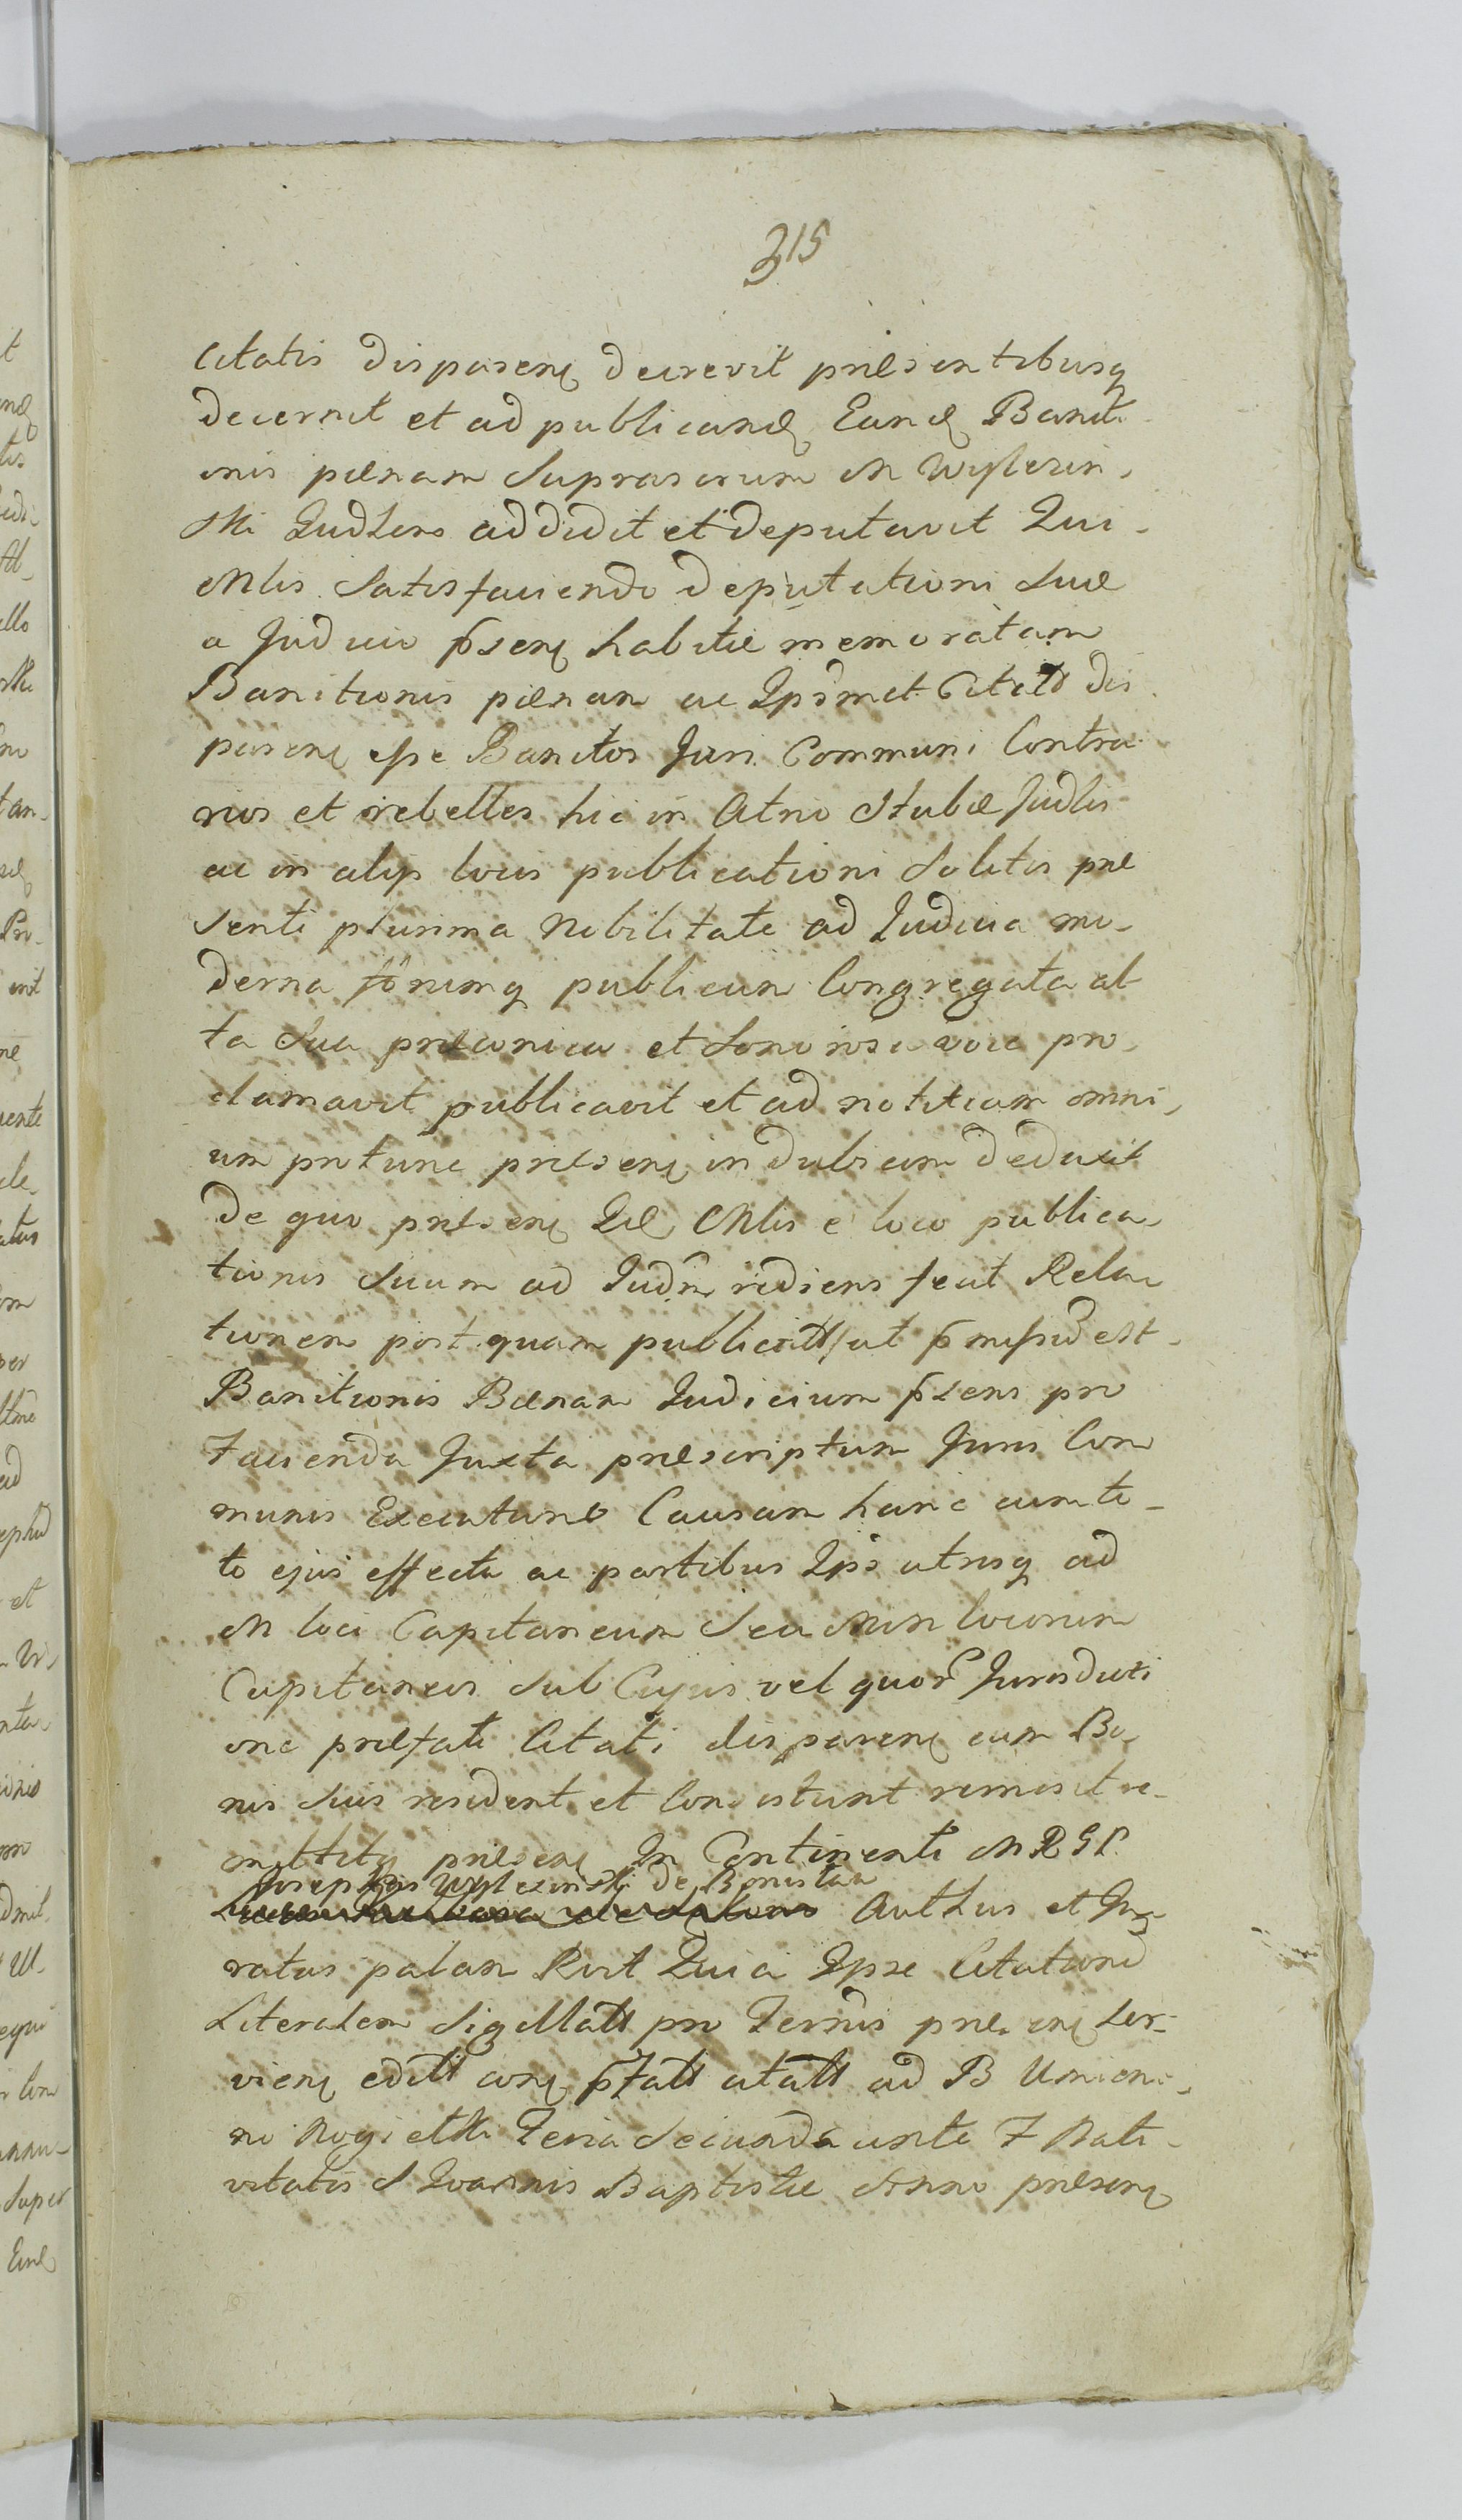 315
Citatis disparenę decrevit præsentibusq
decernit et ad publicandę Eandę Baniti
onis pænam Suprascrum M Wyslezin,
ski Judlens addidit et deputavit Qui
Mlis Satisfaciendo deputationi Suæ
a Judicio psenę habitæ memoratam
Banitionis pænam ac Ipsmet Citatt dis
parenę esse Banitos Juri Communi Contra
rios et rebelles hic in Atrio Stubæ Judlis
ac in alijs locis publicationi Solitis præ
senti plurima Nobilitate ad Judicia mo-
derna forumq publicum Congregata al
ta Sua præconica et Sonorosa voce pro,
clamavit publicavit et ad notitiam omni,
um protunc præsenę indubiam deduxit
de quo præsenę Mlis e loco publica,
tionis Suum ad Judm rediens fecit Rela
tionem postquam publicatt ut pmissū est
Banitionis Pænam Judicium psens pro
Facienda Juxta præscriptum Juris Com
munis Executione Causam hanc cum to-
to ejus effectu ac partibus Ips utrisq ad
M loci Capitaneum Seu Mm locorum
Capitaneos Sub Cujus vel quor Jurisdicti
one præfati Citati disparenę cum Bo,
nis Suis resident et Consistunt remisit re-
mittitq præsenę In Continenti M R G P.
Josephus Wyslezinski de
Authus et Ju
ratus palam Rvit Quia Ipse Citationę
Literalem Sigillatt pro Termis præsenę ser-
vienę editt conę pfatt citatt ad B
no Rogi etKi Feria Secunda ante F Nati-
vitatis S Ioannis Baptistæ Anno præsenę